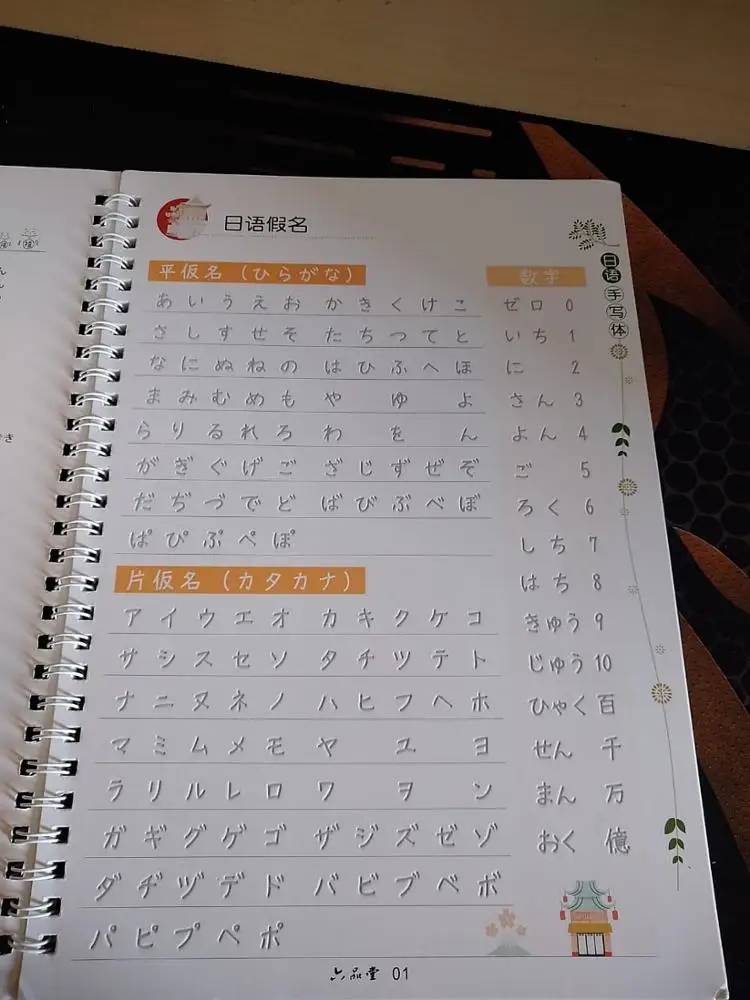 日语假名
平仮名（ひらがな）
あ い う え お か き く け こ
さ し す せ そ た ち つ て と
な に ぬ ね の は ひ ふ へ ほ
ま み む め も や ゆ よ
ら り る れ ろ わ を ん
が ぎ ぐ げ ご ざ じ ず ぜ ぞ
だ ぢ づ で ど ば び ぶ べ ぼ
ぱ ぴ ぷ ぺ ぽ
片仮名（カタカナ）
ア イ ウ エ オ カ キ ク ケ コ
サ シ ス セ ソ タ チ ツ テ ト
ナ ニ ヌ ネ ノ ハ ヒ フ ヘ ホ
マ ミ ム メ モ ヤ ユ ヨ
ラ リ ル レ ロ ワ ヲ ン
ガ ギ グ ゲ ゴ ザ ジ ズ ゼ ゾ
ダ ヂ ヅ デ ド バ ビ ブ ベ ボ
パ ピ プ ペ ポ
数字
ゼロ 0
いち 1
に 2
さん 3
よん 4
ご 5
ろく 6
しち 7
はち 8
きゅう 9
じゅう 10
ひゃく 百
せん 千
まん 万
おく 億
日语手写体
六品堂 01